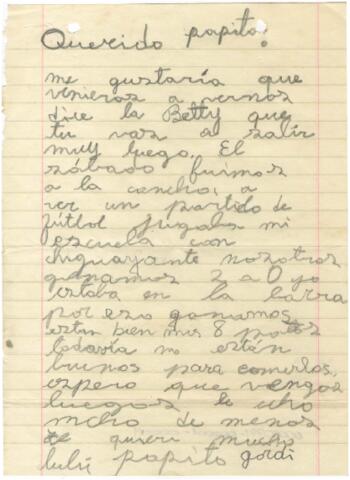 Querido papito:
me gustaría que
vinieras a vernos
dice la Betty que
tu vas a salir
muy luego. El
sábado fuimos
a la cancha, a
ver un partido de
fútbol jugaba mi
escuela con
chiguayante nosotros
ganamos 2 a 0 yo
estaba en la barra
por eso ganamos
estan bien mis 8 patos
todavía no están
buenos para comerlos,
espero que vengas
luego te echo
mcho de menos
te quiere mucho
lulú papito gordi